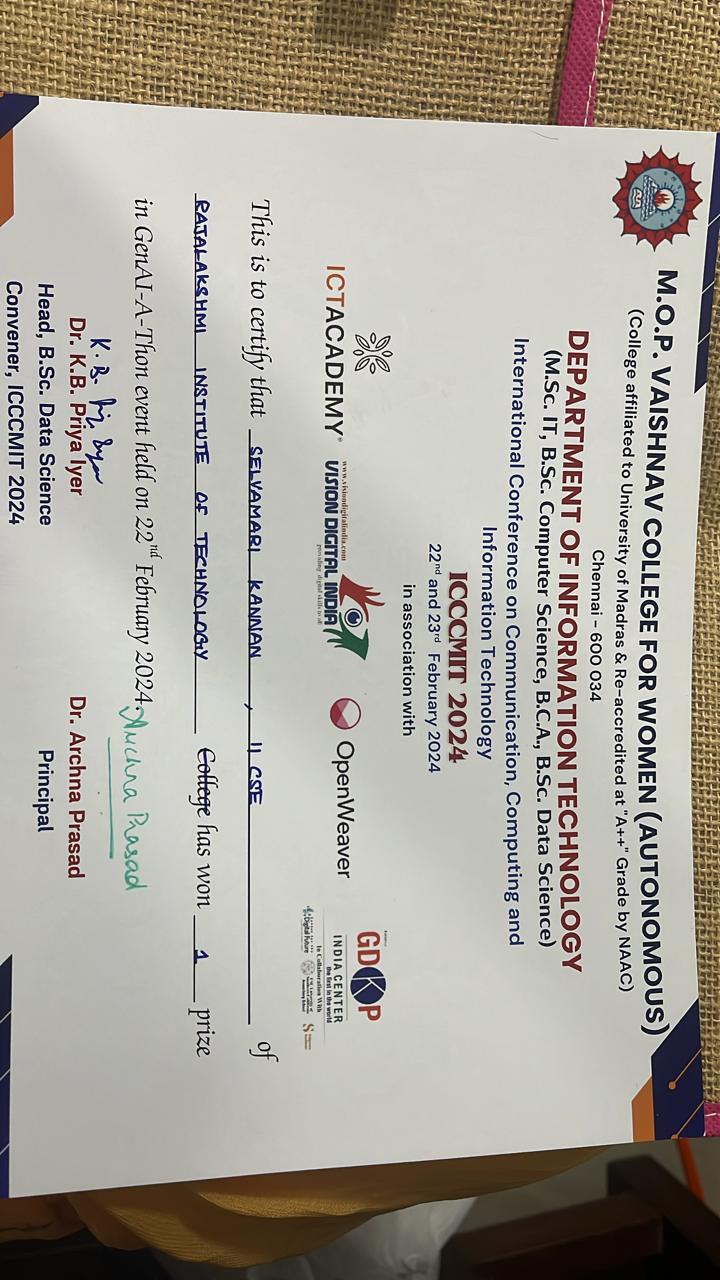 M.O.P. VAISHNAV COLLEGE FOR WOMEN (AUTONOMOUS)
(College affiliated to University of Madras & Re-accredited at "A++" Grade by NAAC)
Chennai – 600 034
DEPARTMENT OF INFORMATION TECHNOLOGY
(M.Sc. IT, B.Sc. Computer Science, B.C.A., B.Sc. Data Science)
International Conference on Communication, Computing and
Information Technology
ICCCMIT 2024
22nd and 23rd February 2024
in association with
ICTACADMEY®
www.visiondigitalindia.com
VISION DIGITAL INDIA
providing digital skills to all
OpenWeaver
GDKP
INDIA CENTER
the first in the world
In Collaboration With
This is to certify that SELVAMARI KANNAN, II CSE of
RAJALAKSHMI INSTITUTE OF TECHNOLOGY College has won 1 prize
in GenAI-A-Thon event held on 22nd February 2024.
K. B. Priya Iyer
Archna Prasad
Dr. K.B. Priya Iyer
Head, B.Sc. Data Science
Convener, ICCCMIT 2024
Dr. Archna Prasad
Principal